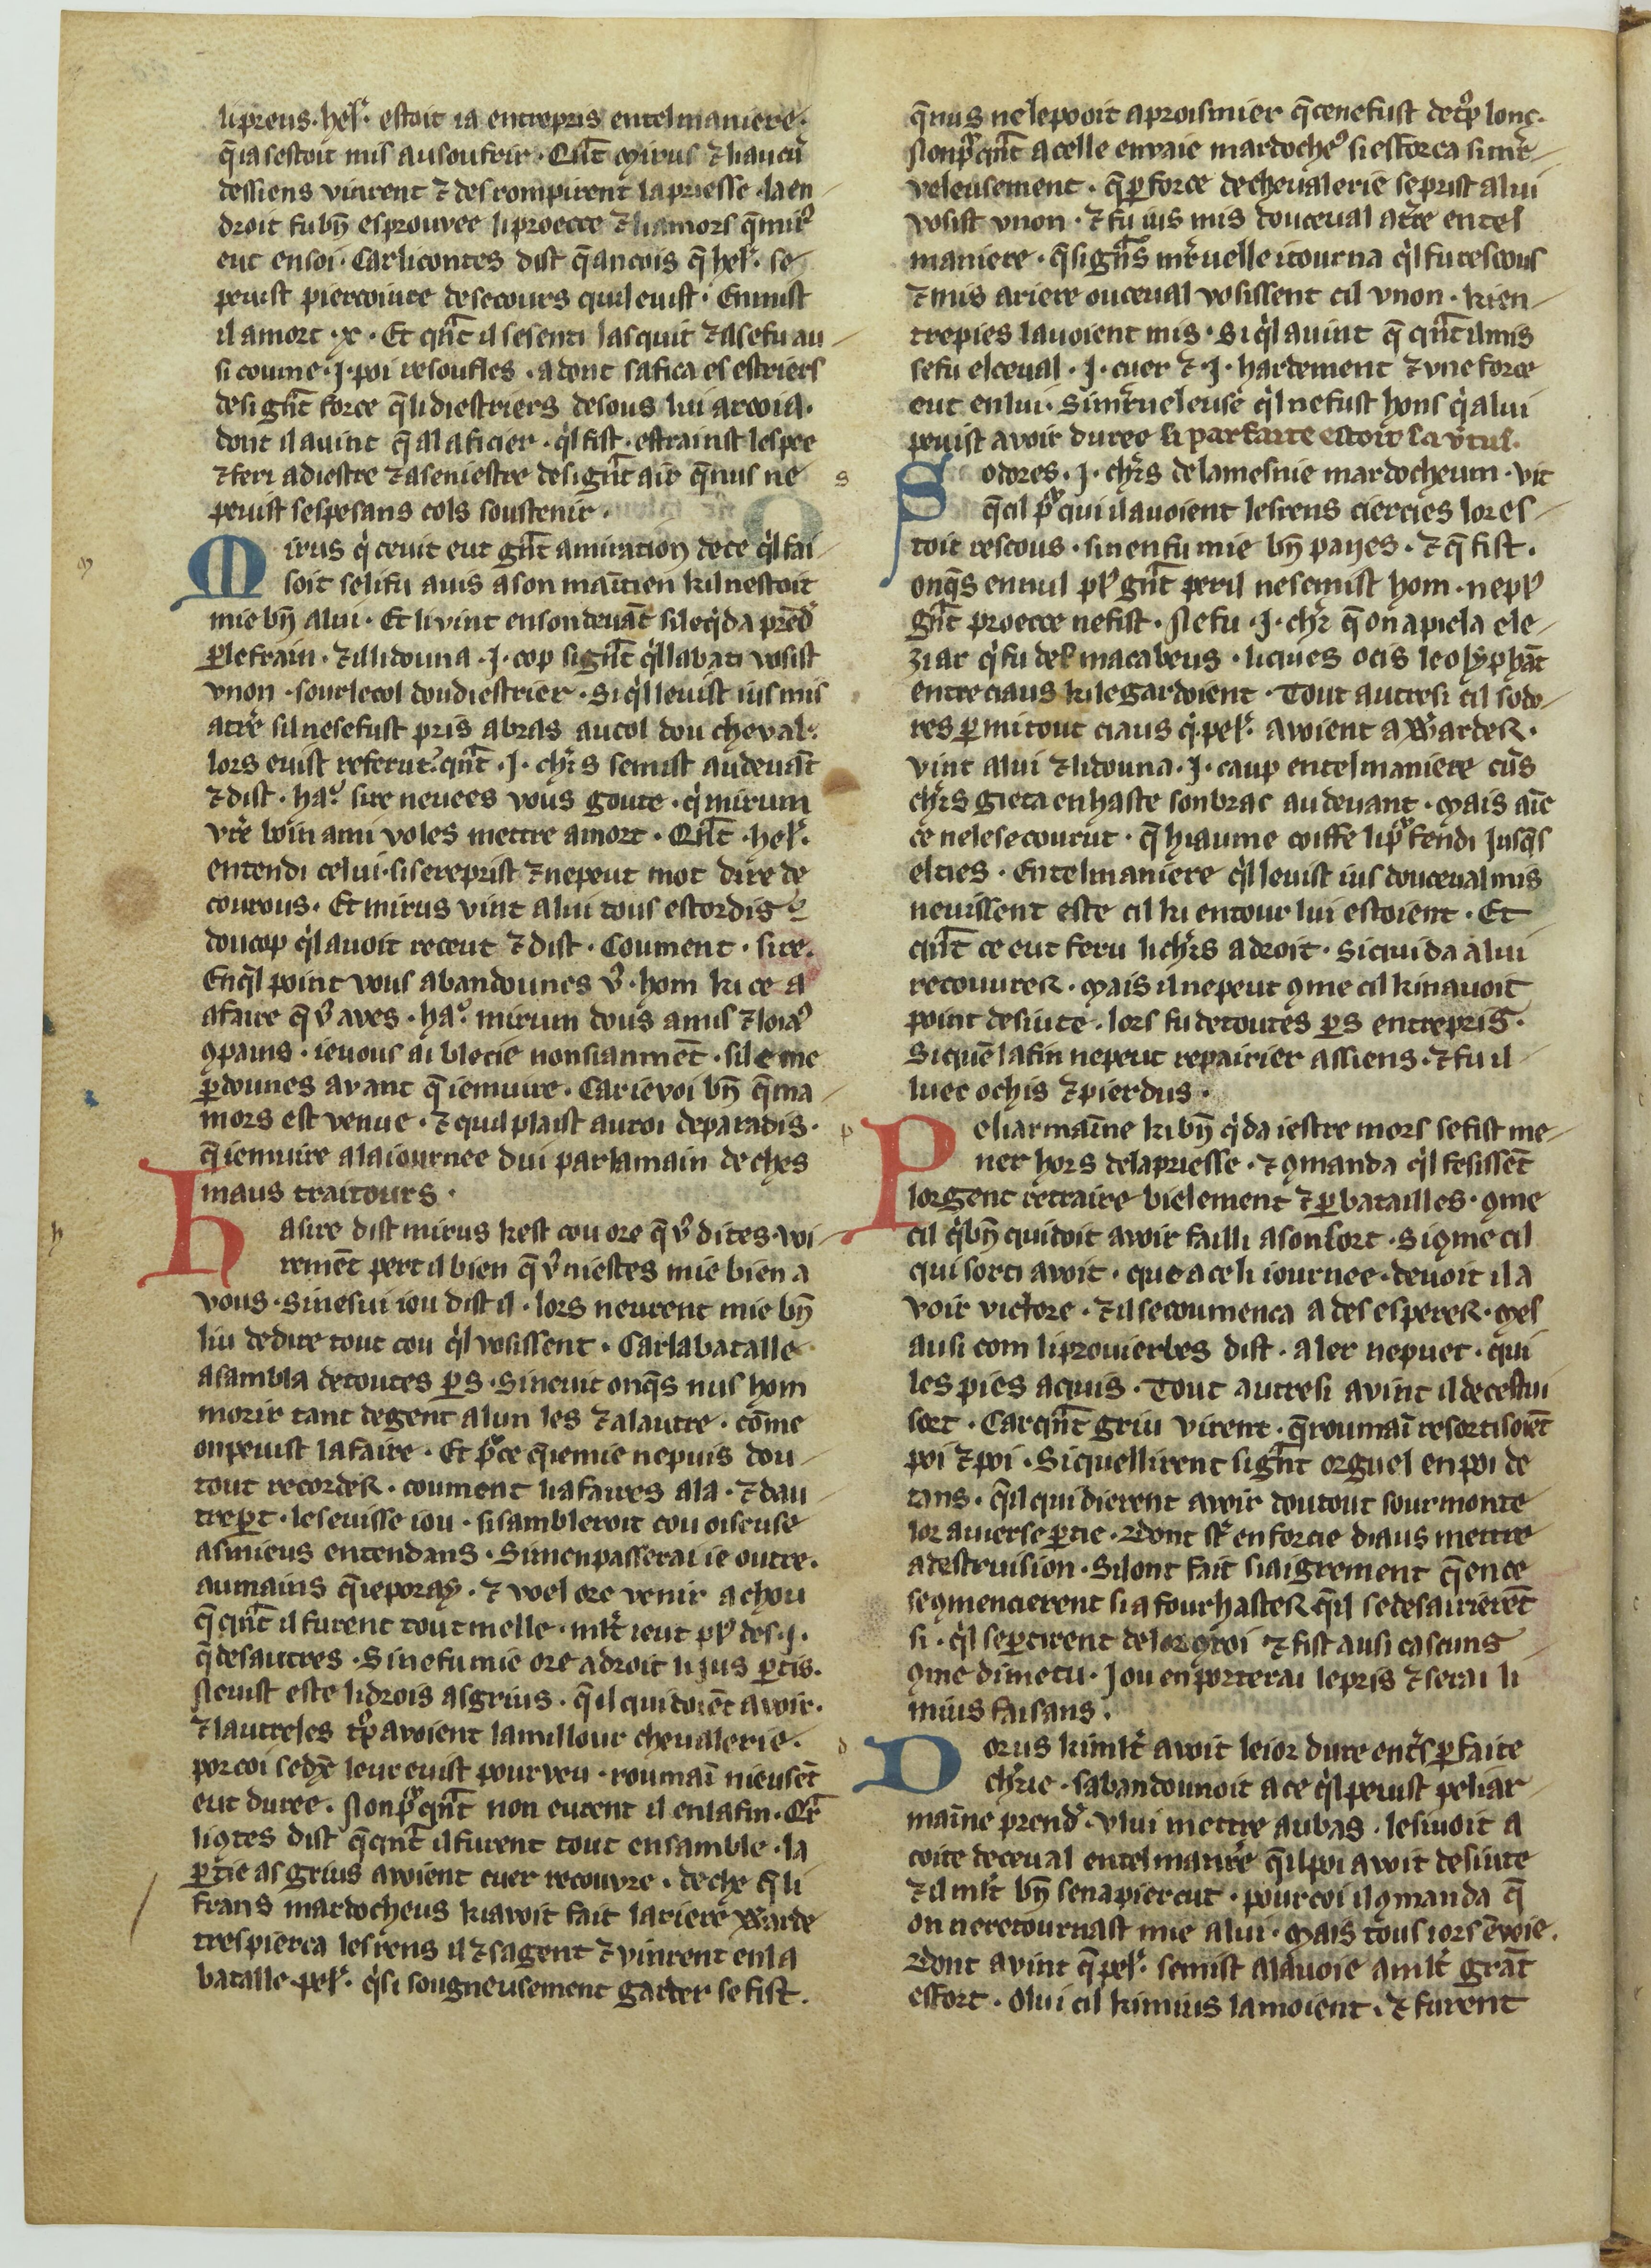 lipreus · hel᷑ · estoit ia entrepris entel maniere ·
q̄ ia sestoit mis ausoufrir · Qn̄t mirus ⁊ li aucū
dessiens vinrent ⁊ desrompirent la priesse · la en
droit fu bn̄ esprouvee li proecce ⁊ li amors q̄ mir᷒
eut en soi · Car li contes dist q̄ ancois q̄ hel᷑ · se
peuist piercoiure de secours quil euist · En mist
il a mort · x · Et qn̄t il se senti lasquit ⁊ il se fu au
si coume · J · poi resoufles · a dont safica es estriers
de si gn̄t force q̄ li diestriers desous lui arcoia ·
dont il avint q̄ al aficier · ql̍ fist · estrainst lespee
⁊ feri a diestre ⁊ a seniestre de si gn̄t air q̄ nus ne
peuist ses pesans cols soustenir ·
Mirus q̍ ce vit eut gn̄t amiration de ce ql̍ fai
soit se li fu avis a son maītien kil nestoit
mie bn̄ a lui · Et li vint en son deuāt si le q̍da prēd᷑
ꝑ le frain · ⁊ il li douna · J · cop si gn̄t ql̍ labati vosist
v non · sour le col dou diestrier · Si ql̍ leuist ius mis
a tr̄re sil ne se fust pris a bras au col dou cheval ·
lors euist referut · qn̄t · J · chr̄s se mist au deuāt
⁊ dist · ha · sire ne uees vous goute · q̍ mirum
vr̄e boin ami voles mettre a mort · Qn̄t · hel᷑ ·
entendi celui · si se reprist ⁊ ne peut mot dire de
courous · Et mirus vint a lui tous estordis
dou cop ql̍ avoit receut ⁊ dist · Coument · sire ·
En ql̍ point vous abandounes v᷒ · hom ki ce a
a faire q̄ v᷒ aves · ha · mirum dous amis ⁊ loia᷒
ꝯpains · ie uous ai blecie non sianmēt · si le me
ꝑdounes avant q̄ ie muire · Car ie voi bn̄ q̄ ma
mors est venue · ⁊ quil plaist au roi de paradis ·
q̄ ie muire a la iournee dui par la main de ches
maus traitours ·
Ha sire dist mirus kest cou ore q̄ v᷒ dites · voi
remēt pert il bien q̄ v᷒ niestes mie bien a
vous · Si ne sui iou dist il · lors neurent mie bn̄
liu de dire tout cou ql̍ vosissent · Car la bataille
asambla de toutes ꝑs · Si ne vit onqs̄ nus hom
morir tant de gent a lun les ⁊ a lautre · cōme
on peuist la faire · Et p̊ ce q̄ ie mie ne puis dou
tout recorder · coument li afaires ala · ⁊ dau
tre ꝑt · le seuisse iou · si sambleroit cou oiseuse
as mieus entendans · Si men passerai ie outre ·
au mains q̄ ie poray · ⁊ woel ore venir a chou
q̄ qn̄t il furent tout melle · ml̄t i eut pl᷒ des · J ·
q̄ des autres · Si ne fu mie ore a droit li jus ꝑtis ·
Neuist este li drois as grius · q̄ il quidoiēt avoir ·
⁊ lautre les tp̊ avoient la millour chevalerie ·
por coi se dx̄ leur euist pourveu · roumaī nieusēt
eut duree · Nonp̊qn̄t non eurent il en la fin · Cr̄
li ꝯtes dist q̄ qn̄t il furent tout ensamble · la
ꝑtie as grius avoient cuer recouvre · de che q̄ li
frans mardocheus ki avoit fait lariere warde
trespierca les rens il ⁊ sa gent ⁊ vinrent en la
bataille · pel᷑ · q̍ si songneusement garder se fist ·
q̄ nus ne le pooit aproismier q̄ ce ne fust de tp̊ long ·
Nonp̊qn̄t a celle envaie mardoche᷒ si esforca si mr̄
veleusement · q̄ ꝑ force de chevalerie se prist a lui
vosist v non · ⁊ fu ius mis dou ceval a tr̄re en tel
maniere · q̄ si gn̄s mr̄uelle i tourna ql̍ fu rescous
⁊ mis ariere ou ceval vosissent cil v non · ki en
tre pies lavoient mis · Si ql̍ avint q̄ qn̄t il mis
se fu el ceval · J · cuer ⁊ · J · hardement ⁊ une force
eut en lui · Si mr̄veleuse ql̍ ne fust hons q̍ a lui
peuist avoir duree si parfaite estoit sa v᷒tus ·
Sodores · J · chr̄s de la mesnie mardocheum · vit
q̄ cil p̊ qui il avoient les rens cierkies lor es
toit rescous · si nen fu mie bn̄ payes · ⁊ q̄ fist ·
onqs̄ en nul pl᷒ gn̄t peril ne se mist hom · ne pl᷒
gn̄t proecce ne fist · Ne fu · J · chr̄ q̄ on apiela ele
ziar q̍ fu del macabeus · li ques ocis le olyphāt
entre ciaus ki le gardoient · Tout autresi cil sodo
res ꝑmi tout ciaus q̍ · pel᷑ · avoient a warder ·
vint a lui ⁊ li douna · J · caup en tel maniere
chr̄s gieta en haste son brac au devant · Mais
ce ne le secourut · q̄ hiaume coiffe li p̊fendi jusqs̄
el ties · En tel maniere ql̍ leuist ius dou ceval mis
neuissent este cil ki entour lui estoient · Et
qn̄t ce eut feru li chr̄s a droit · si quida a lui
recouvrer · Mais il ne peut ꝯme cil ki navoit
point de siute · lors fu de toutes ꝑs entrepris ·
Si quē la fin ne peut repairier as siens · ⁊ fu il
luec ochis ⁊ pierdus ·
Peliarmaīne ki bn̄ q̍da iestre mors se fist me
ner hors de la priesse · ⁊ ꝯmanda ql̍ fesissēt
lor gent retraire bielement ⁊ ꝑ batailles · ꝯme
cil q̍ bn̄ quidoit avoir failli a son sort · Si ꝯme cil
qui sorti avoit · que a celi iournee · devoit il a
voir victore · ⁊ il se coumenca a desesperer · Mes
ausi com li provierbes dist · aler nepuet · qui
les pies a cuis · Tout autresi avint il de cestui
sort · Car qn̄t griu virent · q̄ roumaī resortisoiēt
poi ⁊ poi · Si quellirent si gn̄t orguel en poi de
tans · q̄ il quidierent avoir dou tout sourmonte
lor averse ꝑtie · Dont st᷑ en forcie diaus mettre
a destruision · Si lont fait si aigrement q̄ en ce
se ꝯmencierent si a fourhaster q̄ il se desairierēt
si · ql̍ se ꝑtirent de lor ꝯroi ⁊ fist ausi cascuns
ꝯme dime tu · Jou en porterai le pris ⁊ serai li
mius faisans ·
Dorus ki ml̄t avoit le ior dure entr̄s ꝑfaite
chr̄ie · sabandounoit a ce ql̍ peuist peliar
maīne prend᷑ · v lui mettre au bas · le sivoit a
coite de ceval en tel manr̄e q̄ il poi avoit de siute
⁊ il ml̄t bn̄ sen apiercut · pour coi il ꝯmanda q̄
on ne retournast mie a lui · Mais tous iors ēvoie ·
Dont avint q̄ pel᷑ · se mist a la voie a ml̄t grāt
esfort · o lui cil ki mius lamoient · ⁊ furent